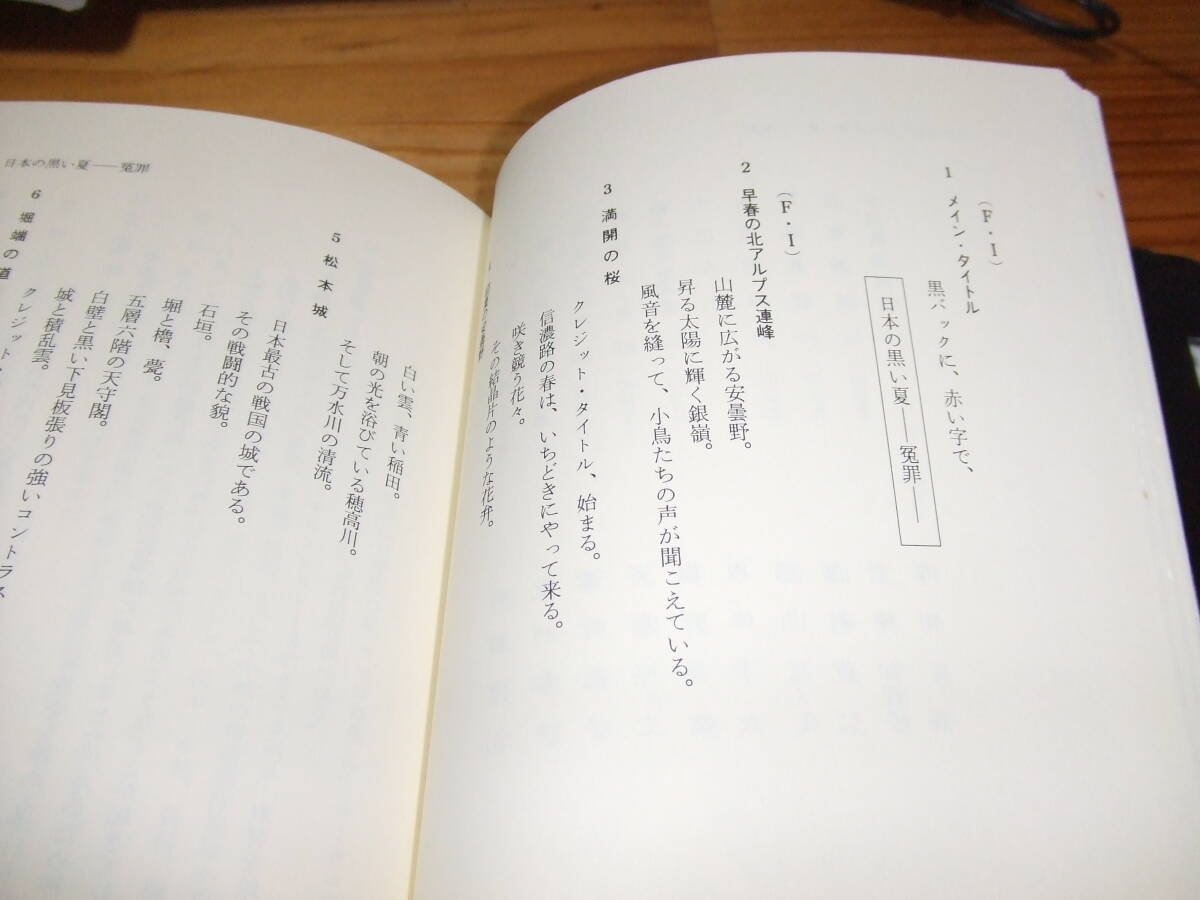 (F・I)
1 メイン・タイトル
黒バックに、赤い字で、
日本の黒い夏――冤罪――
(F・I)
2 早春の北アルプス連峰
山麓に広がる安曇野。
昇る太陽に輝く銀嶺。
風音を縫って、小鳥たちの声が聞こえている。
3 満開の桜
クレジット・タイトル、始まる。
信濃路の春は、いちどきにやって来る。
咲き競う花々。
その結晶片のような花弁。
日本の黒い夏――冤罪
白い雲、青い稲田。
朝の光を浴びている穂高川。
そして万水川の清流。
5 松本城
日本最古の戦国の城である。
その戦闘的な貌。
石垣。
堀と櫓、甍。
五層六階の天守閣。
白壁と黒い下見板張りの強いコントラス
城と積乱雲。
6 堀端の道
クレジット・